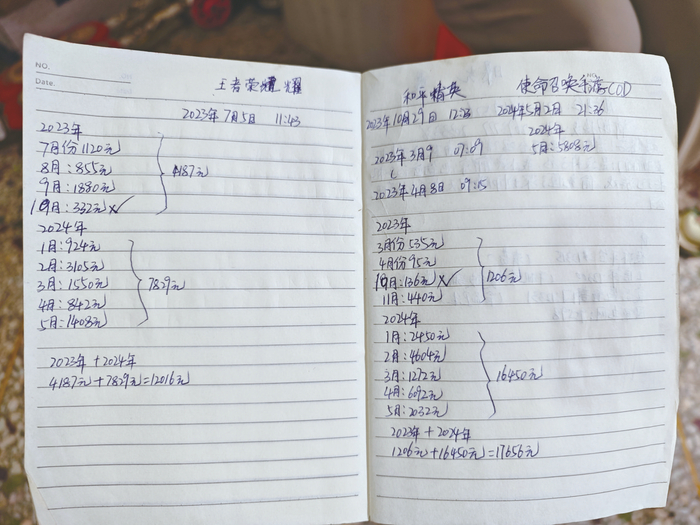 NO.
Date.
王者荣耀 耀
2023年7月5日 11:43
2023年
7月份1120元
8月:855元
9月:1880元
10月:332元
4187元
2024年
1月:924元
2月:3105元
3月:1550元
4月:842元
5月:1408元
7829元
2023年+2024年
4187元+7829元=12016元
和平精英
2023年10月29日 12:23
2023年3月9 07:09
2023年4月8日 09:15
2023年
3月份535元
4月份95元
10月:136元
11月:440元
1206元
2024年
1月:2450元
2月:4604元
3月:1272元
4月:6092元
5月:2032元
16450元
2023年+2024年
1206元+16450元=17656元
使命召唤手游COD
2024年5月2日 21:36
2024年
5月:5808元